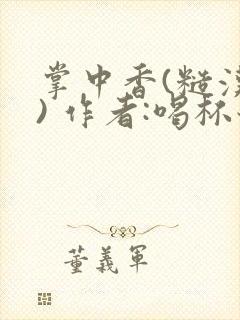 掌中香(糙汉
) 作者:喝杯
董义军